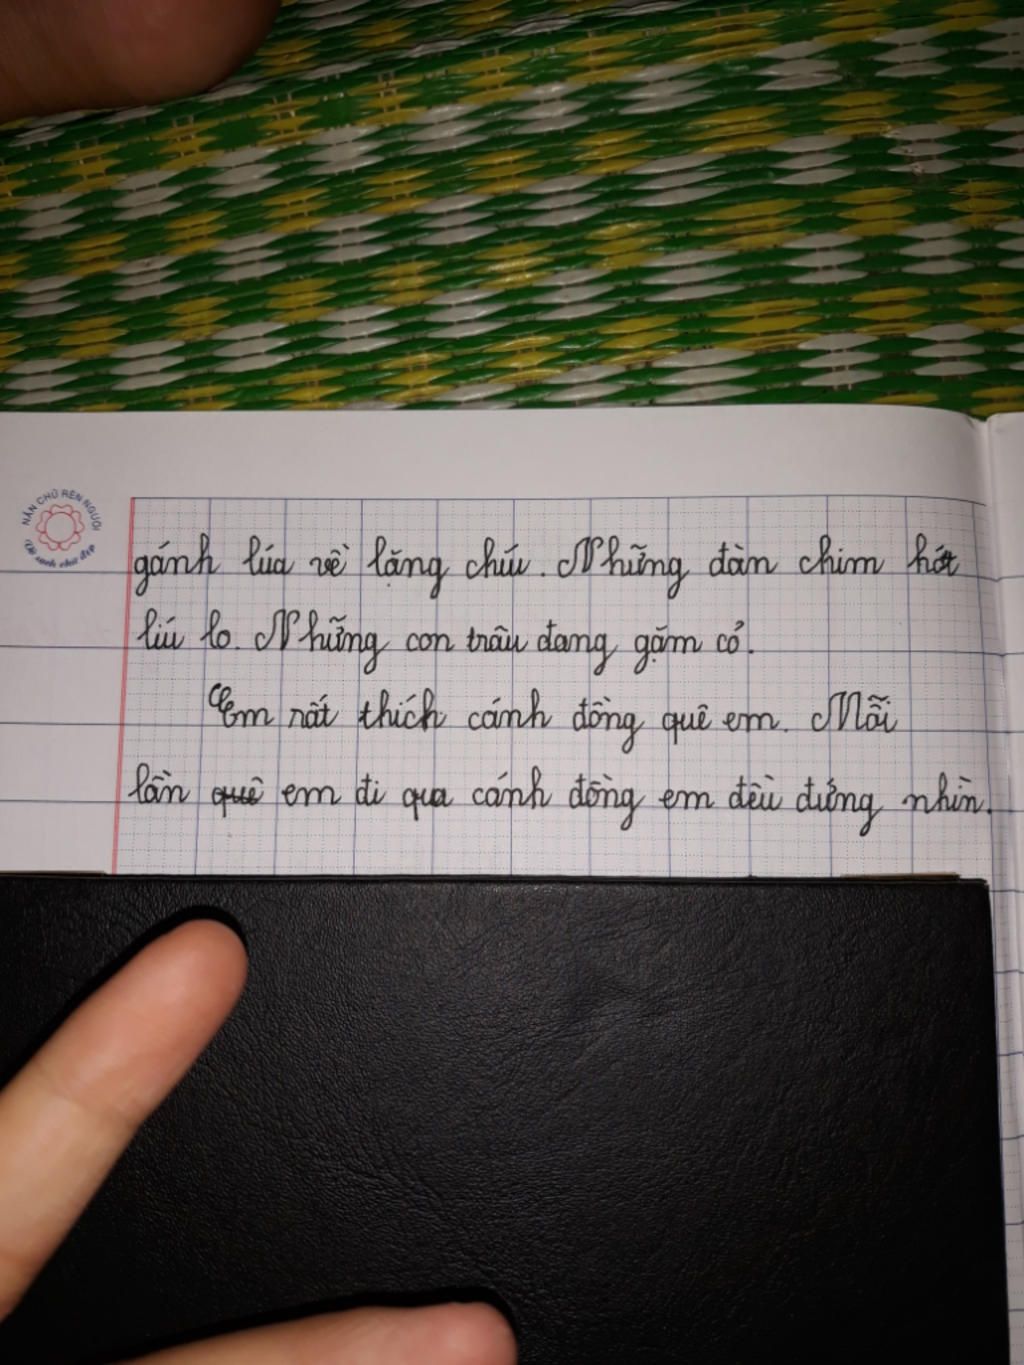 NẮN CHỮ RÈN NGƯỜI
Vở sạch chữ đẹp
gánh lúa về lặng chứu. Những đàn chim hót
líu lo. Những con trâu đang gặm cỏ.
Em rất thích cánh đồng quê em. Mỗi
lần quê em đi qua cánh đồng em đều đứng nhìn.